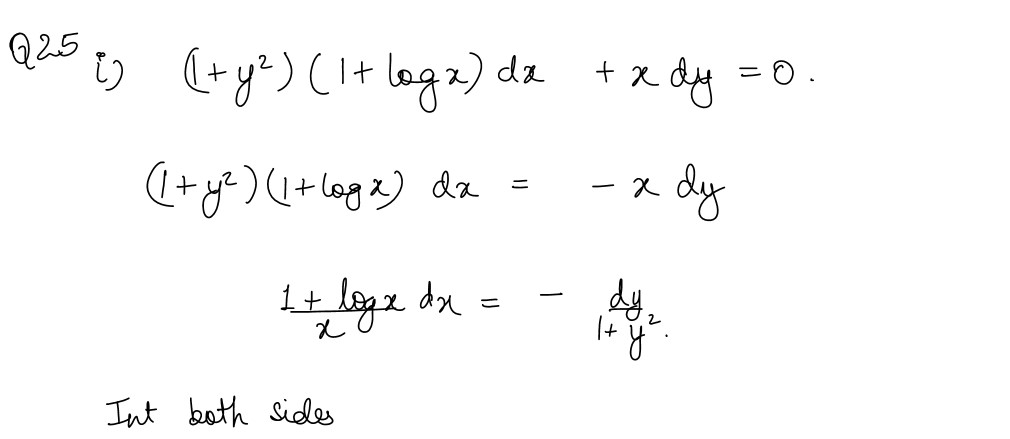 Q25 i) (1+y²)(1+logx) dx + x dy = 0.
(1+y²)(1+logx) dx = - x dy
(1+logx)/x dx = - dy/(1+y²).
Int both sides